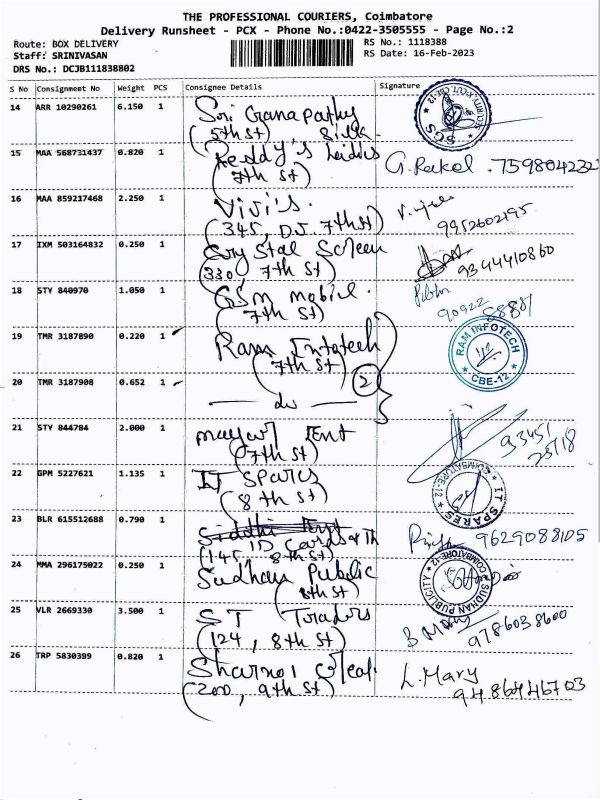 THE PROFESSIONAL COURIERS, Coimbatore
Delivery Runsheet - PCX - Phone No.:0422-3505555 - Page No.:2
Route: BOX DELIVERY RS No.: 1118388
Staff: SRINIVASAN RS Date: 16-Feb-2023
DRS No.: DCJB111838802
S No Consignment No Weight PCS Consignee Details Signature
14 ARR 10290261 6.150 1 Sri Ganapathy
(5th St) Silk
SGS
15 MAA 568731437 0.820 1 Reddy's Ladies
(7th St)
16 MAA 859217468 2.250 1 Viji's.
(345, D.J. 7th St) 9952602195
17 IXM 503164832 0.250 1 Crystal Screen
(330 7th St) 9344410860
18 STY 840970 1.050 1 GSM mobile.
(7th St) 90922
19 TMR 3187890 0.220 1 Ram Infotech
(7th St)
RAM INFOTECH
CBE-12
20 TMR 3187908 0.652 1 — do — 2
21 STY 844784 2.000 1 Ent
(7th St) 93451
22 GPM 5227621 1.135 1 IT Spares
(8th St)
IT SPARES
COIMBATORE-12
23 BLR 615512688 0.790 1 Siddhi Ent
ID Cards
(145 8th St) 9629088105
24 MMA 296175022 0.250 1 Sudhan Public
(8th St)
SUDHAN PUBLICITY
COIMBATORE-12
25 VLR 2669330 3.500 1 S T Traders
(124, 8th St) 9786038600
26 TRP 5830399 0.820 1
(200, 9th St) L. Mary
9486446703